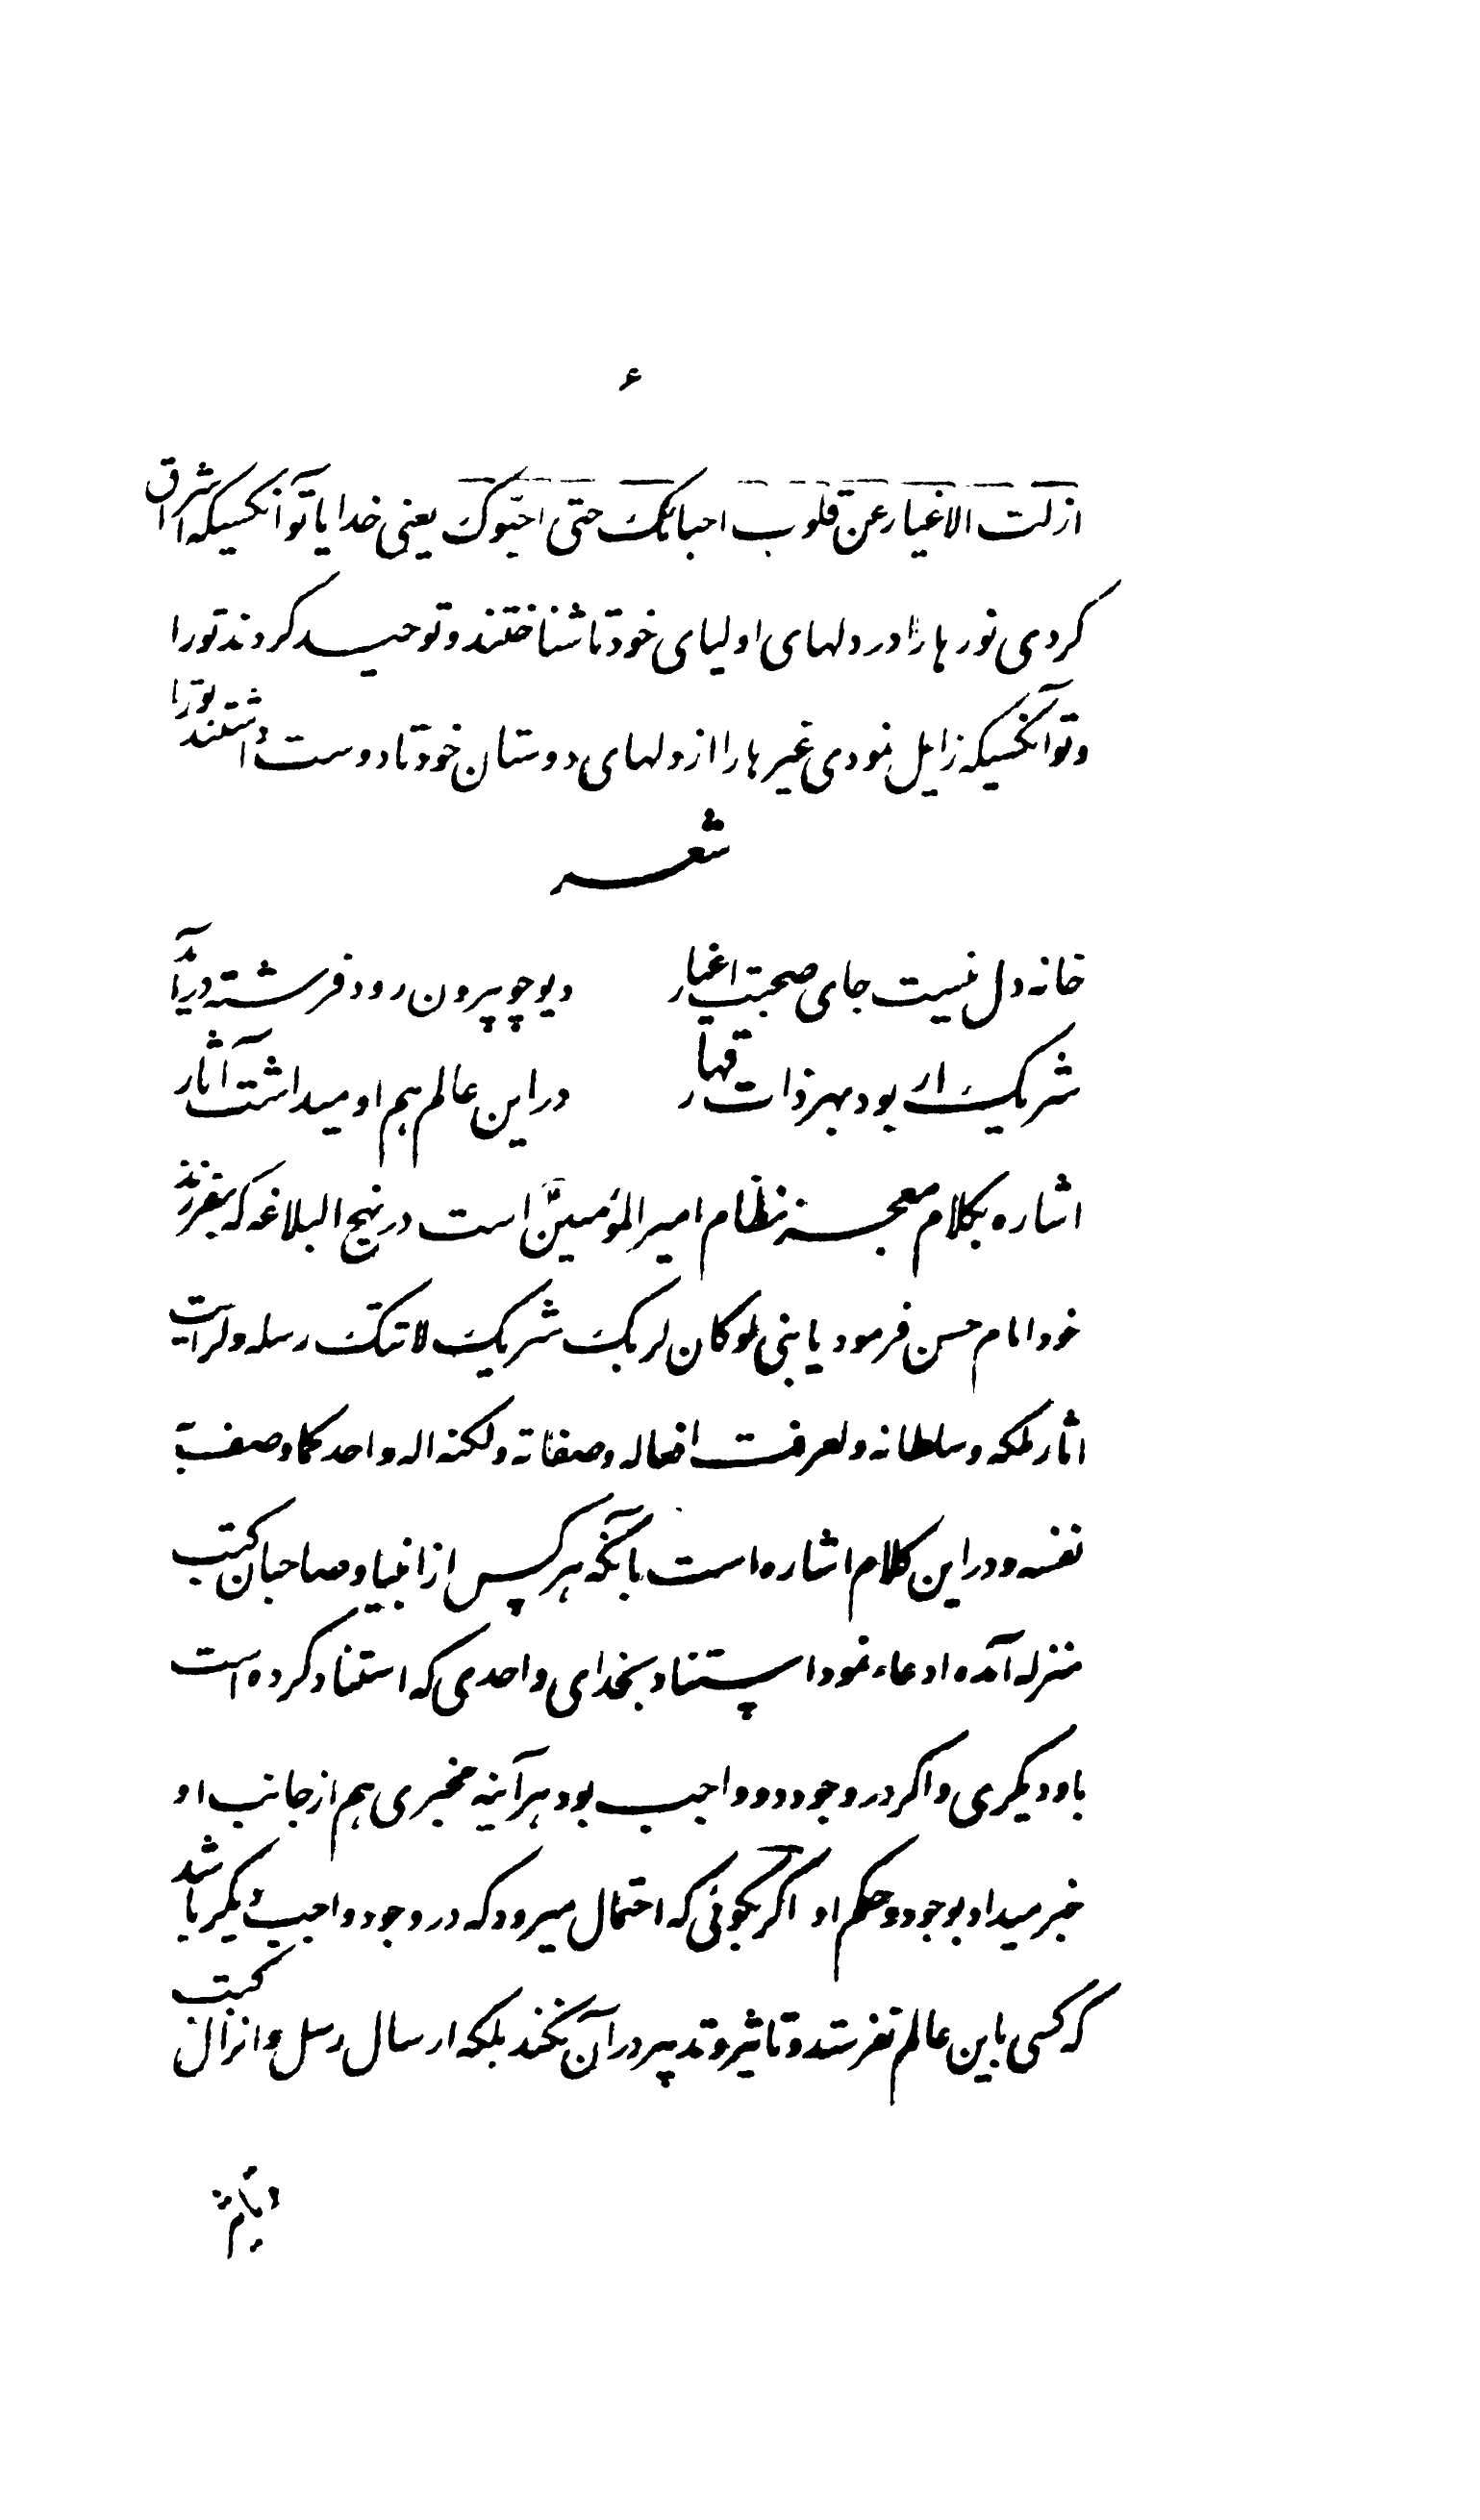 ۶
ازلت الاغیار عن قلوب احبائک حتی احبوک یعنی خدایا تو آنکسیکه اشراق
کردی نورها را در دلهای اولیای خود تا شناختند و توحید کردند تو را
و تو آنکسیکه زایل نمودی غیرها را از دلهای دوستان خود تا دوست داشتند تو را
شعر
خانه دل نیست جای صحبت اغیار
دیو چو بیرون رود فرشته در آید
شریک ار بود بهر ذات قهار
در این عالم هم او میداشت آثار
اشاره بکلام معجز نظام امیر المؤمنین است در نهج البلاغه که بفرزند
خود امام حسن فرمود یا بنی لو کان لربک شریک لاتتک رسله و لرأیت
اثار ملکه و سلطانه و لعرفت افعاله و صفاته و لکنه اله واحد کما وصف به
نفسه و در این کلام اشاره است بآنکه هر کس از انبیا و صاحبان کتب
منزله آمده ادعاء نمود استناد بخدای واحدی که استناد کرده است
باو دیگری و اگر در وجود دو واجب بود هرآینه مخبری هم از جانب او
خبر میداد بوجود و حکم او اگر بگوئی که احتمال میرود که در وجود واجب دیگر باشد
که کسی باین عالم نفرستد و تاثیر و تدبیر در آن نکند بلکه ارسال رسل و انزال کتب